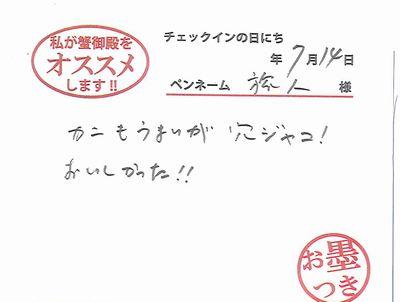 私が蟹御殿を
オススメ
します!!
チェックインの日にち
年 7月 14日
ペンネーム 旅人 様
カニもうまいが 穴ジャコ!
おいしかった!!
お墨
つき